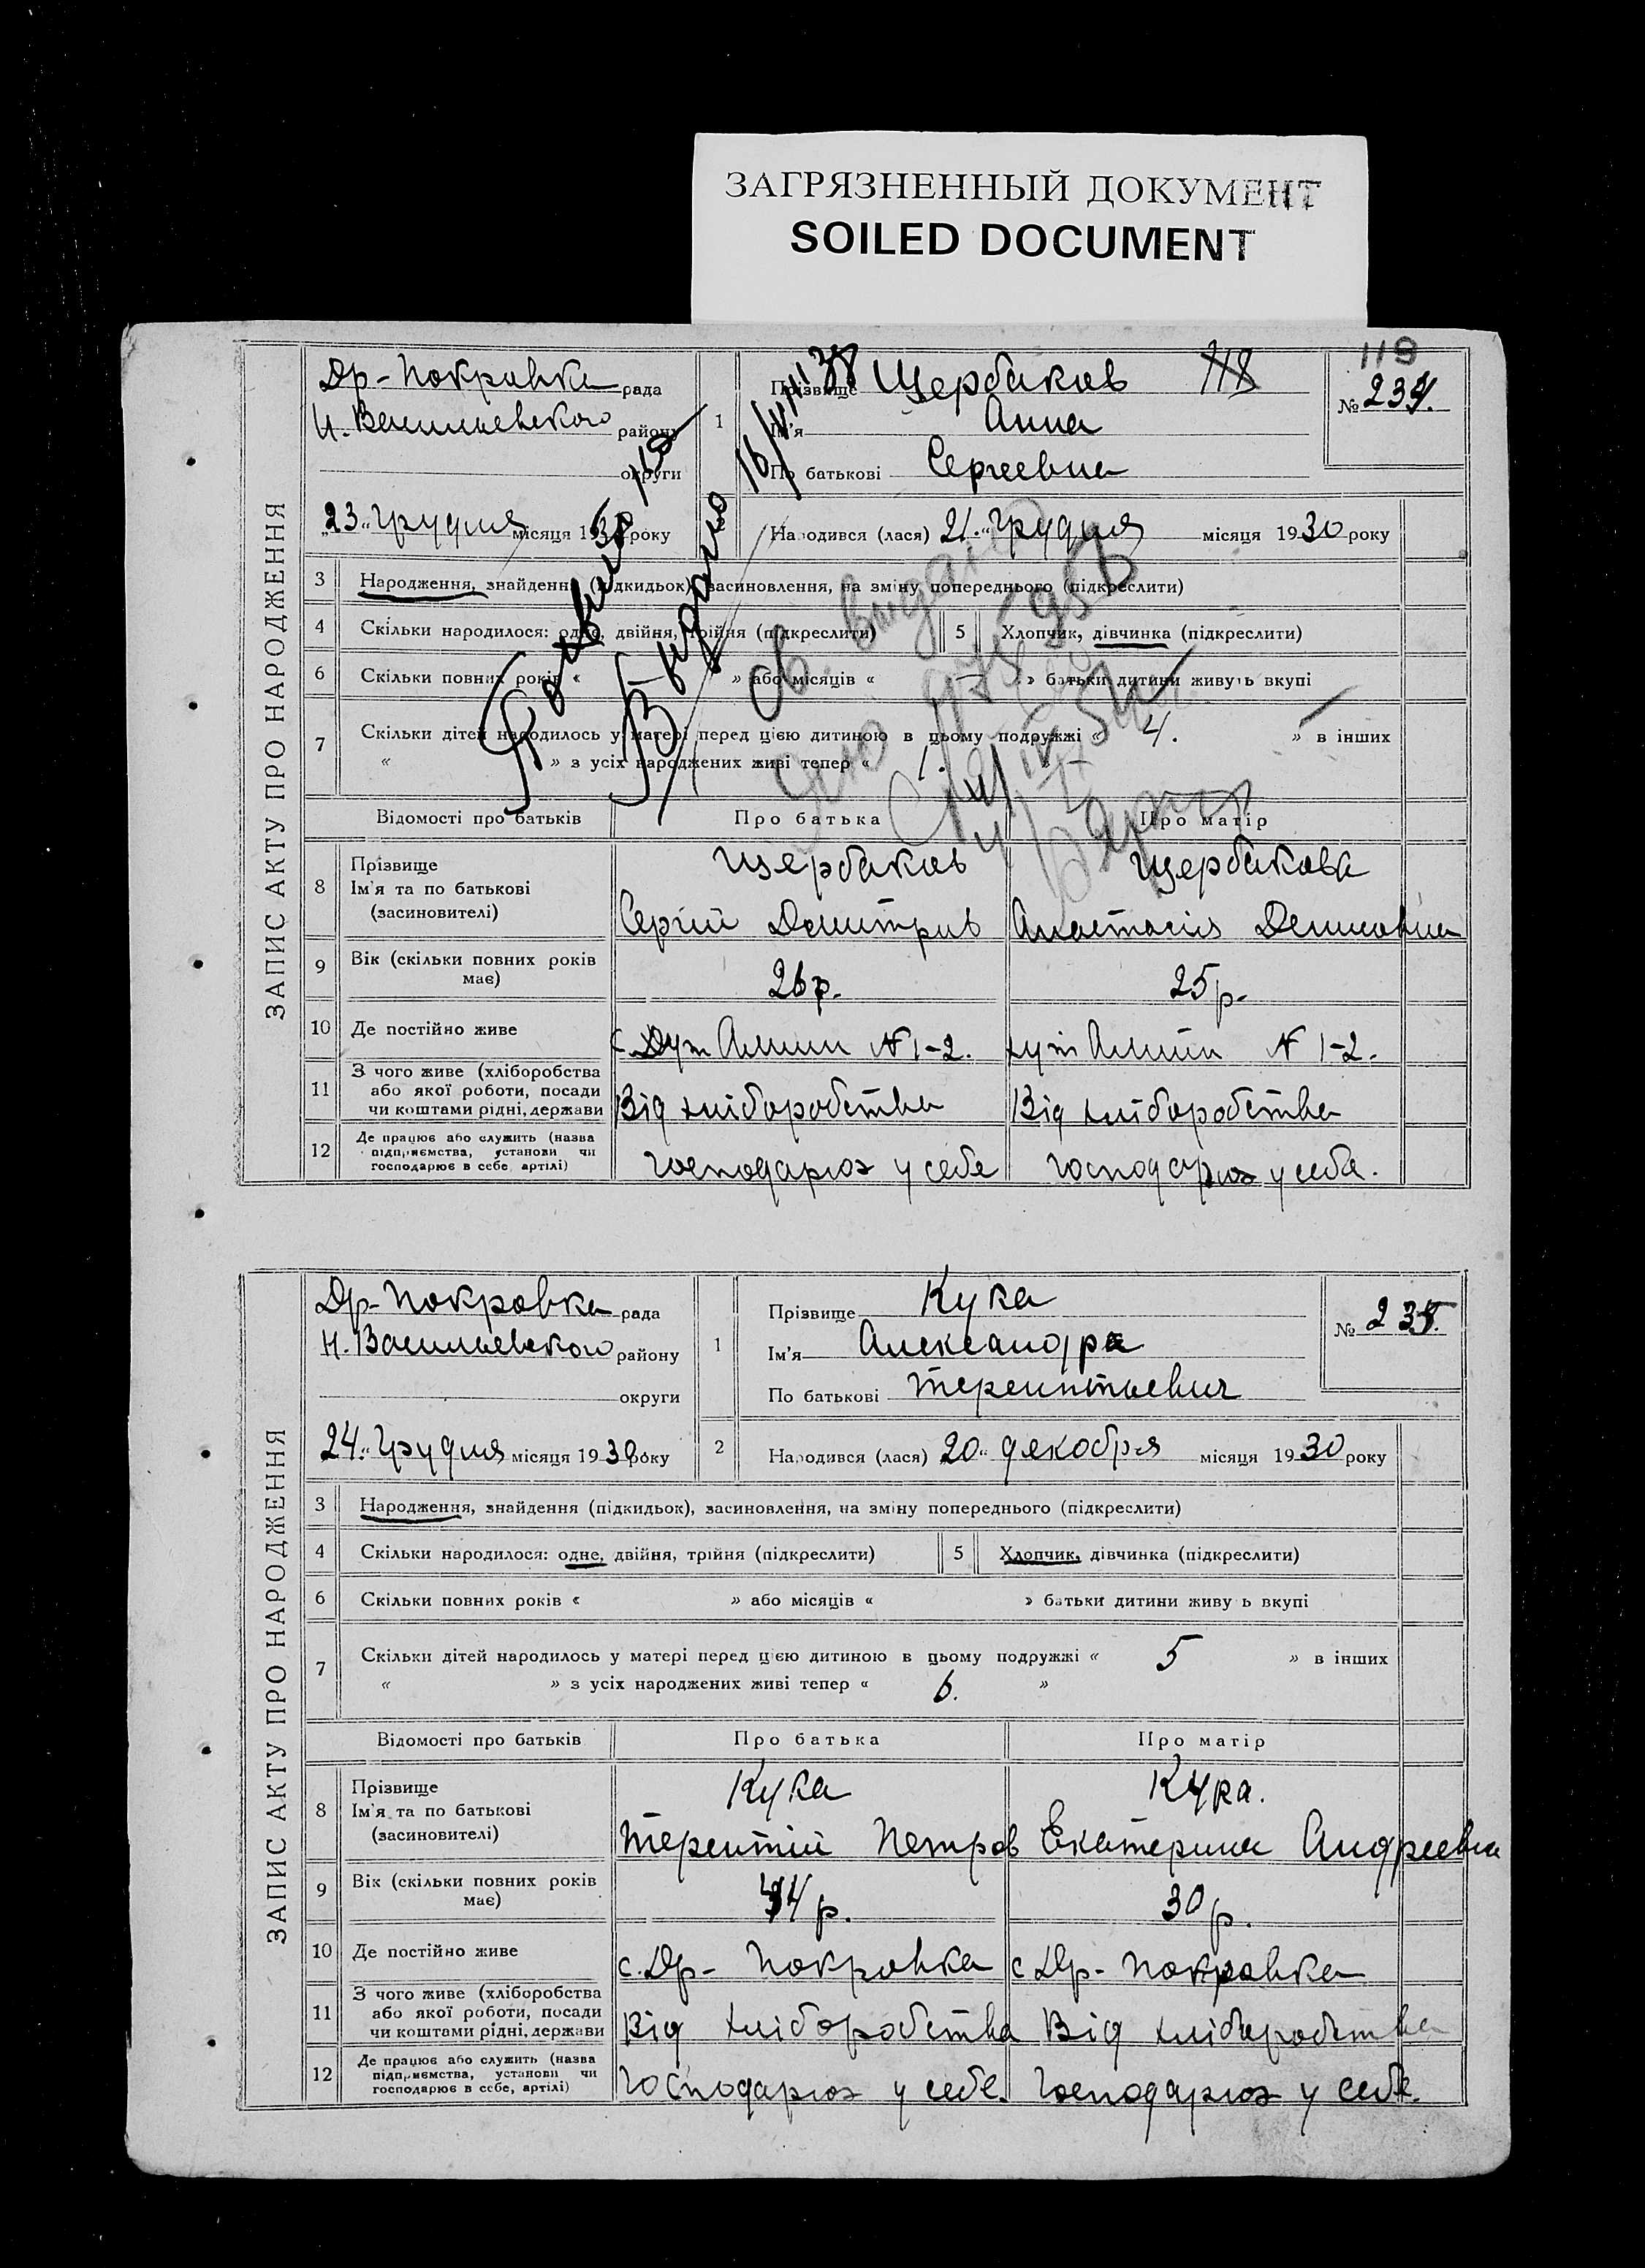 ЗАГРЯЗНЕННЫЙ ДОКУМЕНТ
SOILED DOCUMENT
119
ЗАПИС АКТУ ПРО НАРОДЖЕННЯ
Др-Покровка рада
Н. Васильевского району
округи
23 „ Грудня місяця 1930 року
1
Прізвище Щербаков 118
Ім'я Анна
По батькові Сергеевна
№ 234.
Народився (лася) 21 „ Грудня місяця 1930 року
3 Народження, знайдення (підкидьок), засиновлення, на зміну попереднього (підкреслити)
4 Скільки народилося: одне, двійня, трійня (підкреслити) 5 Хлопчик, дівчинка (підкреслити)
6 Скільки повних років « » або місяців « » батьки дитини живуть вкупі
7 Скільки дітей народилось у матері перед цією дитиною в цьому подружжі « 4. » в інших
« » з усіх народжених живі тепер « 1.
Відомості про батьків Про батька Про матір
8 Прізвище Ім'я та по батькові (засиновителі)
Щербаков Щербакова
Сергій Дмитрив Анастасия Денисовна
9 Вік (скільки повних років має) 26 р. 25 р.
10 Де постійно живе № 1-2. № 1-2.
11 З чого живе (хліборобства або якої роботи, посади чи коштами рідні, держави Від хліборобства Від хліборобства
12 Де працює або служить (назва підприємства, установи чи господарює в себе, артілі) господарює у себе господарює у себе.
ЗАПИС АКТУ ПРО НАРОДЖЕННЯ
Др-Покровка рада
Н. Васильевского району
округи
24 „ Грудня місяця 1930 року
1
Прізвище Кука
Ім'я Александра
По батькові Терентьевич
№ 235.
2 Народився (лася) 20 „ декобря місяця 1930 року
3 Народження, знайдення (підкидьок), засиновлення, на зміну попереднього (підкреслити)
4 Скільки народилося: одне, двійня, трійня (підкреслити) 5 Хлопчик, дівчинка (підкреслити)
6 Скільки повних років « » або місяців « » батьки дитини живу ь вкупі
7 Скільки дітей народилось у матері перед цією дитиною в цьому подружжі « 5 » в інших
« » з усіх народжених живі тепер « 6. »
Відомості про батьків Про батька Про матір
8 Прізвище Ім'я та по батькові (засиновителі)
Кука Кука.
Терентій Петров Екатерина Андреевна
9 Вік (скільки повних років має) 34 р. 30 р.
10 Де постійно живе с. Др- Покровка с Др- Покровка
11 З чого живе (хліборобства або якої роботи, посади чи коштами рідні, держави Від хліборобства Від хліборобства
12 Де працює або служить (назва підприємства, установи чи господарює в себе, артілі) Господарює у себе. Господарює у себе.